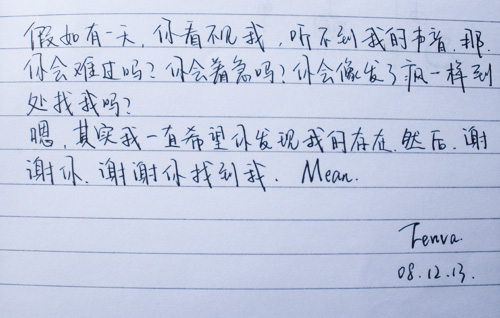 假如有一天，你看不见我，听不到我的声音，那
你会难过吗？你会着急吗？你会像发了疯一样到
处找我吗？
嗯，其实我一直希望你发现我的存在，然后，谢
谢你、谢谢你找到我． Mean.
Tenva.
08.12.13.